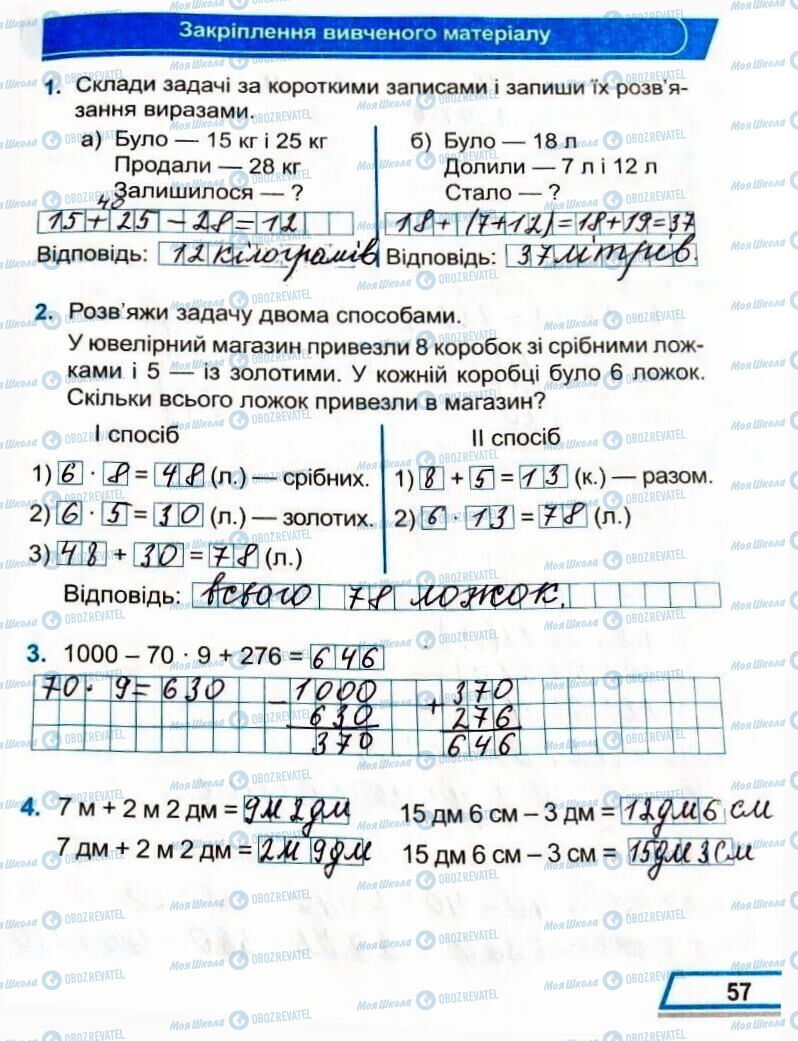 Закріплення вивченого матеріалу
1. Склади задачі за короткими записами і запиши їх розв'я-
зання виразами.
а) Було — 15 кг і 25 кг
Продали — 28 кг
Залишилося — ?
48
15+25-28=12
Відповідь: 12 кілограмів
б) Було — 18 л
Долили — 7 л і 12 л
Стало — ?
18+(7+12)=18+19=37
Відповідь: 37 літрів.
2. Розв'яжи задачу двома способами.
У ювелірний магазин привезли 8 коробок зі срібними лож-
ками і 5 — із золотими. У кожній коробці було 6 ложок.
Скільки всього ложок привезли в магазин?
І спосіб
1) 6 · 8 = 48 (л.) — срібних.
2) 6 · 5 = 30 (л.) — золотих.
3) 48 + 30 = 78 (л.)
ІІ спосіб
1) 8 + 5 = 13 (к.) — разом.
2) 6 · 13 = 78 (л.)
Відповідь: всього 78 ложок.
3. 1000 – 70 · 9 + 276 = 646
70 · 9 = 630
- 1000
630
370
+ 370
276
646
4. 7 м + 2 м 2 дм = 9м 2дм
15 дм 6 см – 3 дм = 12дм 6 см
7 дм + 2 м 2 дм = 2м 9дм
15 дм 6 см – 3 см = 15дм 3см
57
МояШкола OBOZREVATEL